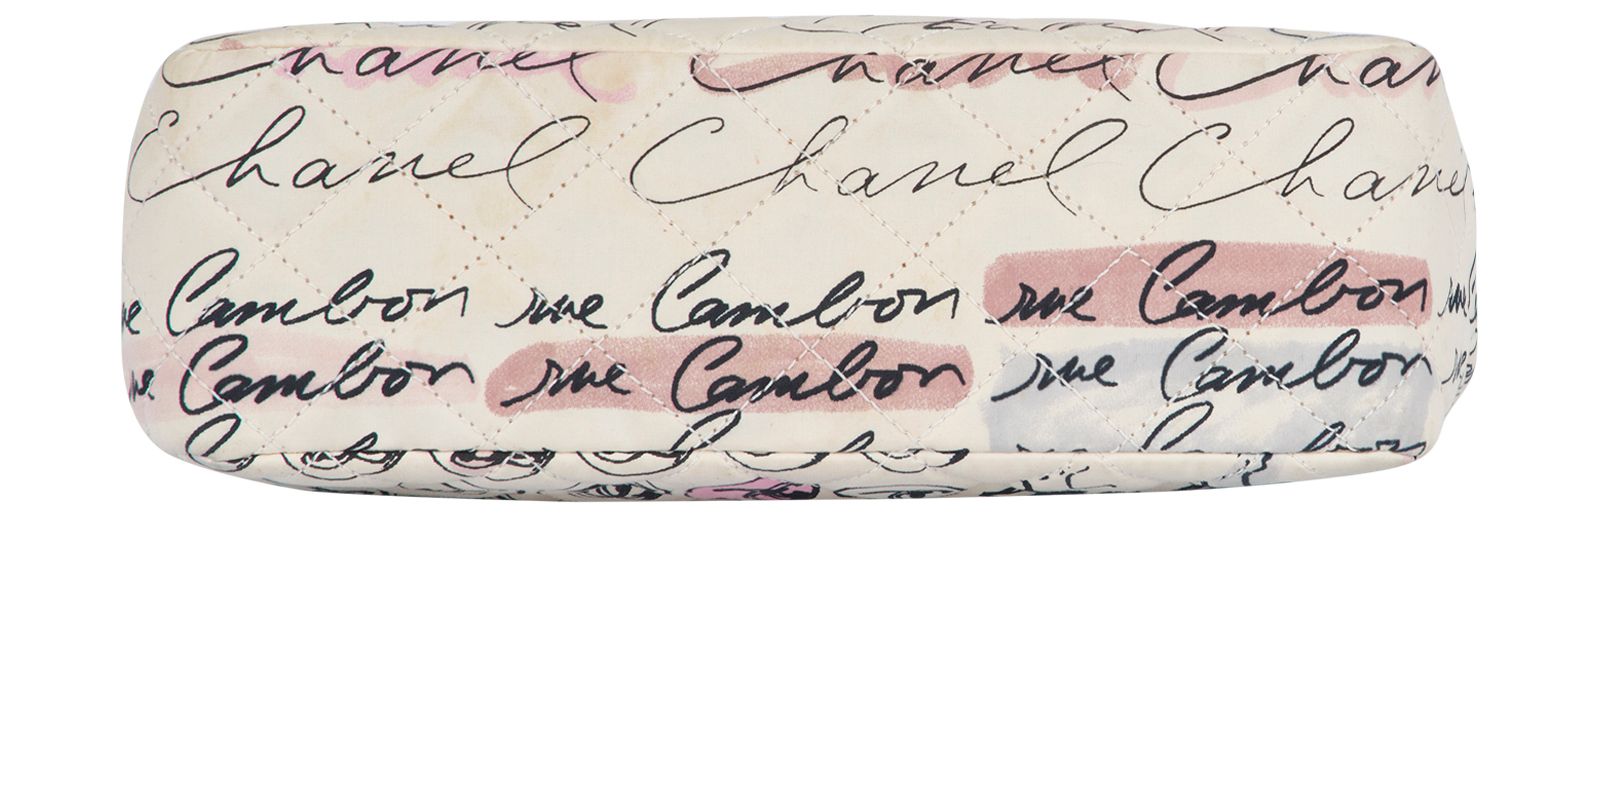 Chanel Chanel Chan
Chanel Chanel Chanel
rue Cambon rue Cambon rue Cambon rue
Cambon rue Cambon rue Cambon